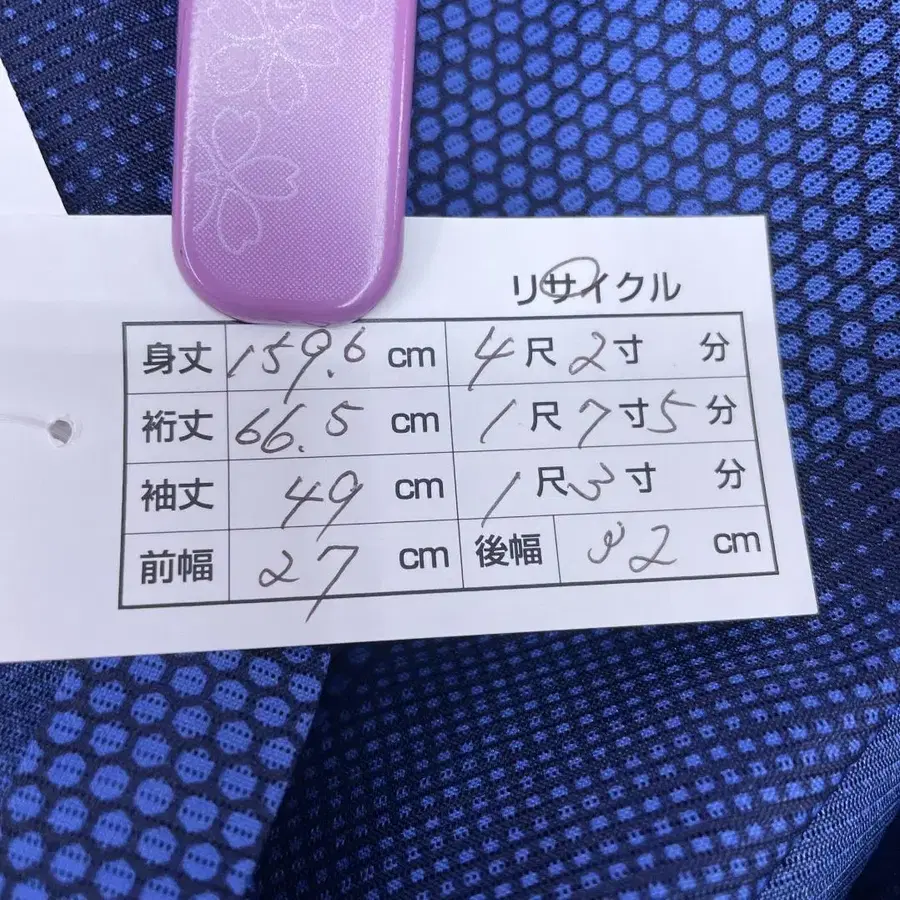 リサイクル
身丈 159.6 cm 4尺 2寸 分
裄丈 66.5 cm 1尺 7寸 5分
袖丈 49 cm 1尺 3寸 分
前幅 27 cm 後幅 32 cm